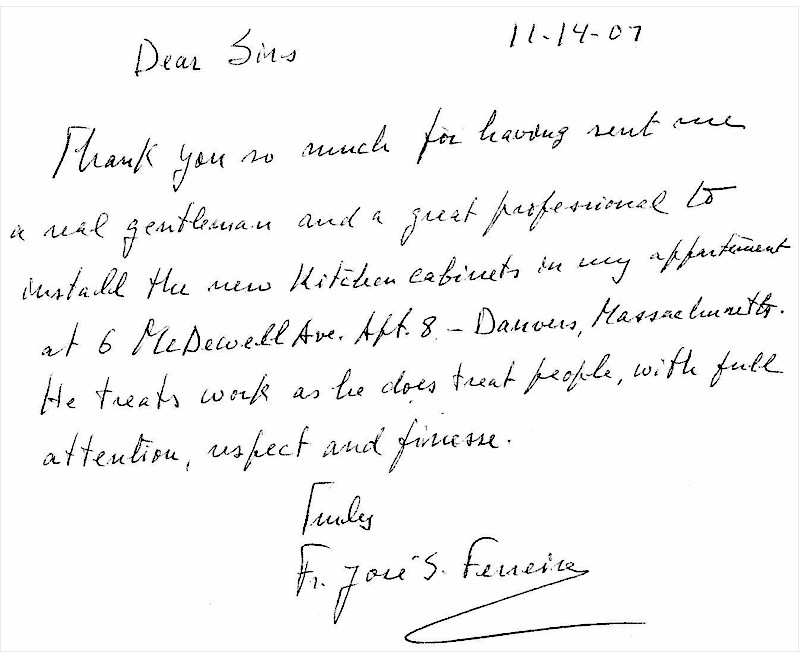 11-14-07
Dear Sirs
Thank you so much for having sent me
a real gentleman and a great professional to
install the new Kitchen cabinets in my appartement
at 6 McDewell Ave. Apt. 8 - Danvers, Massachusetts.
He treats work as he does treat people, with full
attention, respect and finesse.
Truly
Fr. José S. Ferreira